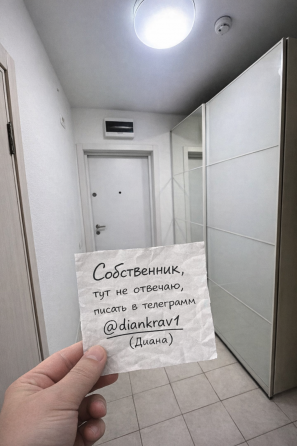 Собственник,
тут не отвечаю,
писать в телеграмм
@diankrav1
(Диана)